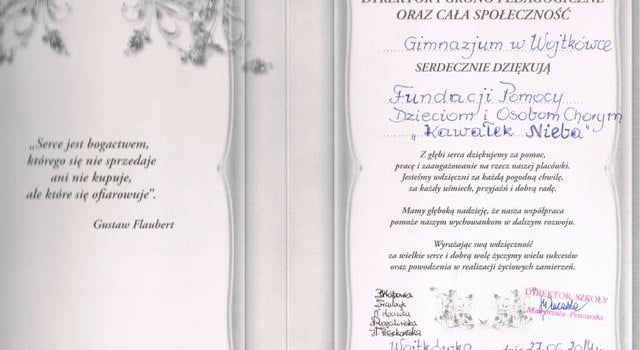 „Serce jest bogactwem,
którego się nie sprzedaje
ani nie kupuje,
ale które się ofiarowuje".
Gustaw Flaubert
DYREKTOR I GRONO PEDAGOGICZNE
ORAZ CAŁA SPOŁECZNOŚĆ
Gimnazjum w Wojtkówce
SERDECZNIE DZIĘKUJĄ
Fundacji Pomocy
Dzieciom i Osobom Chorym
„Kawałek Nieba"
Z głębi serca dziękujemy za pomoc,
pracę i zaangażowanie na rzecz naszej placówki.
Jesteśmy wdzięczni za każdą pogodną chwilę,
za każdy uśmiech, przyjaźń i dobrą radę.
Mamy głęboką nadzieję, że nasza współpraca
pomoże naszym wychowankom w dalszym rozwoju.
Wyrażając swą wdzięczność
za wielkie serce i dobrą wolę życzymy wielu sukcesów
oraz powodzenia w realizacji życiowych zamierzeń.
DYREKTOR SZKOŁY
Małgorzata
Wojtkówka dnia 27.06.2014